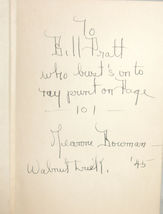 To
Bill Pratt
who bursts on to
my print on Page
101
Jeanne Bowman
Walnut Creek. '45